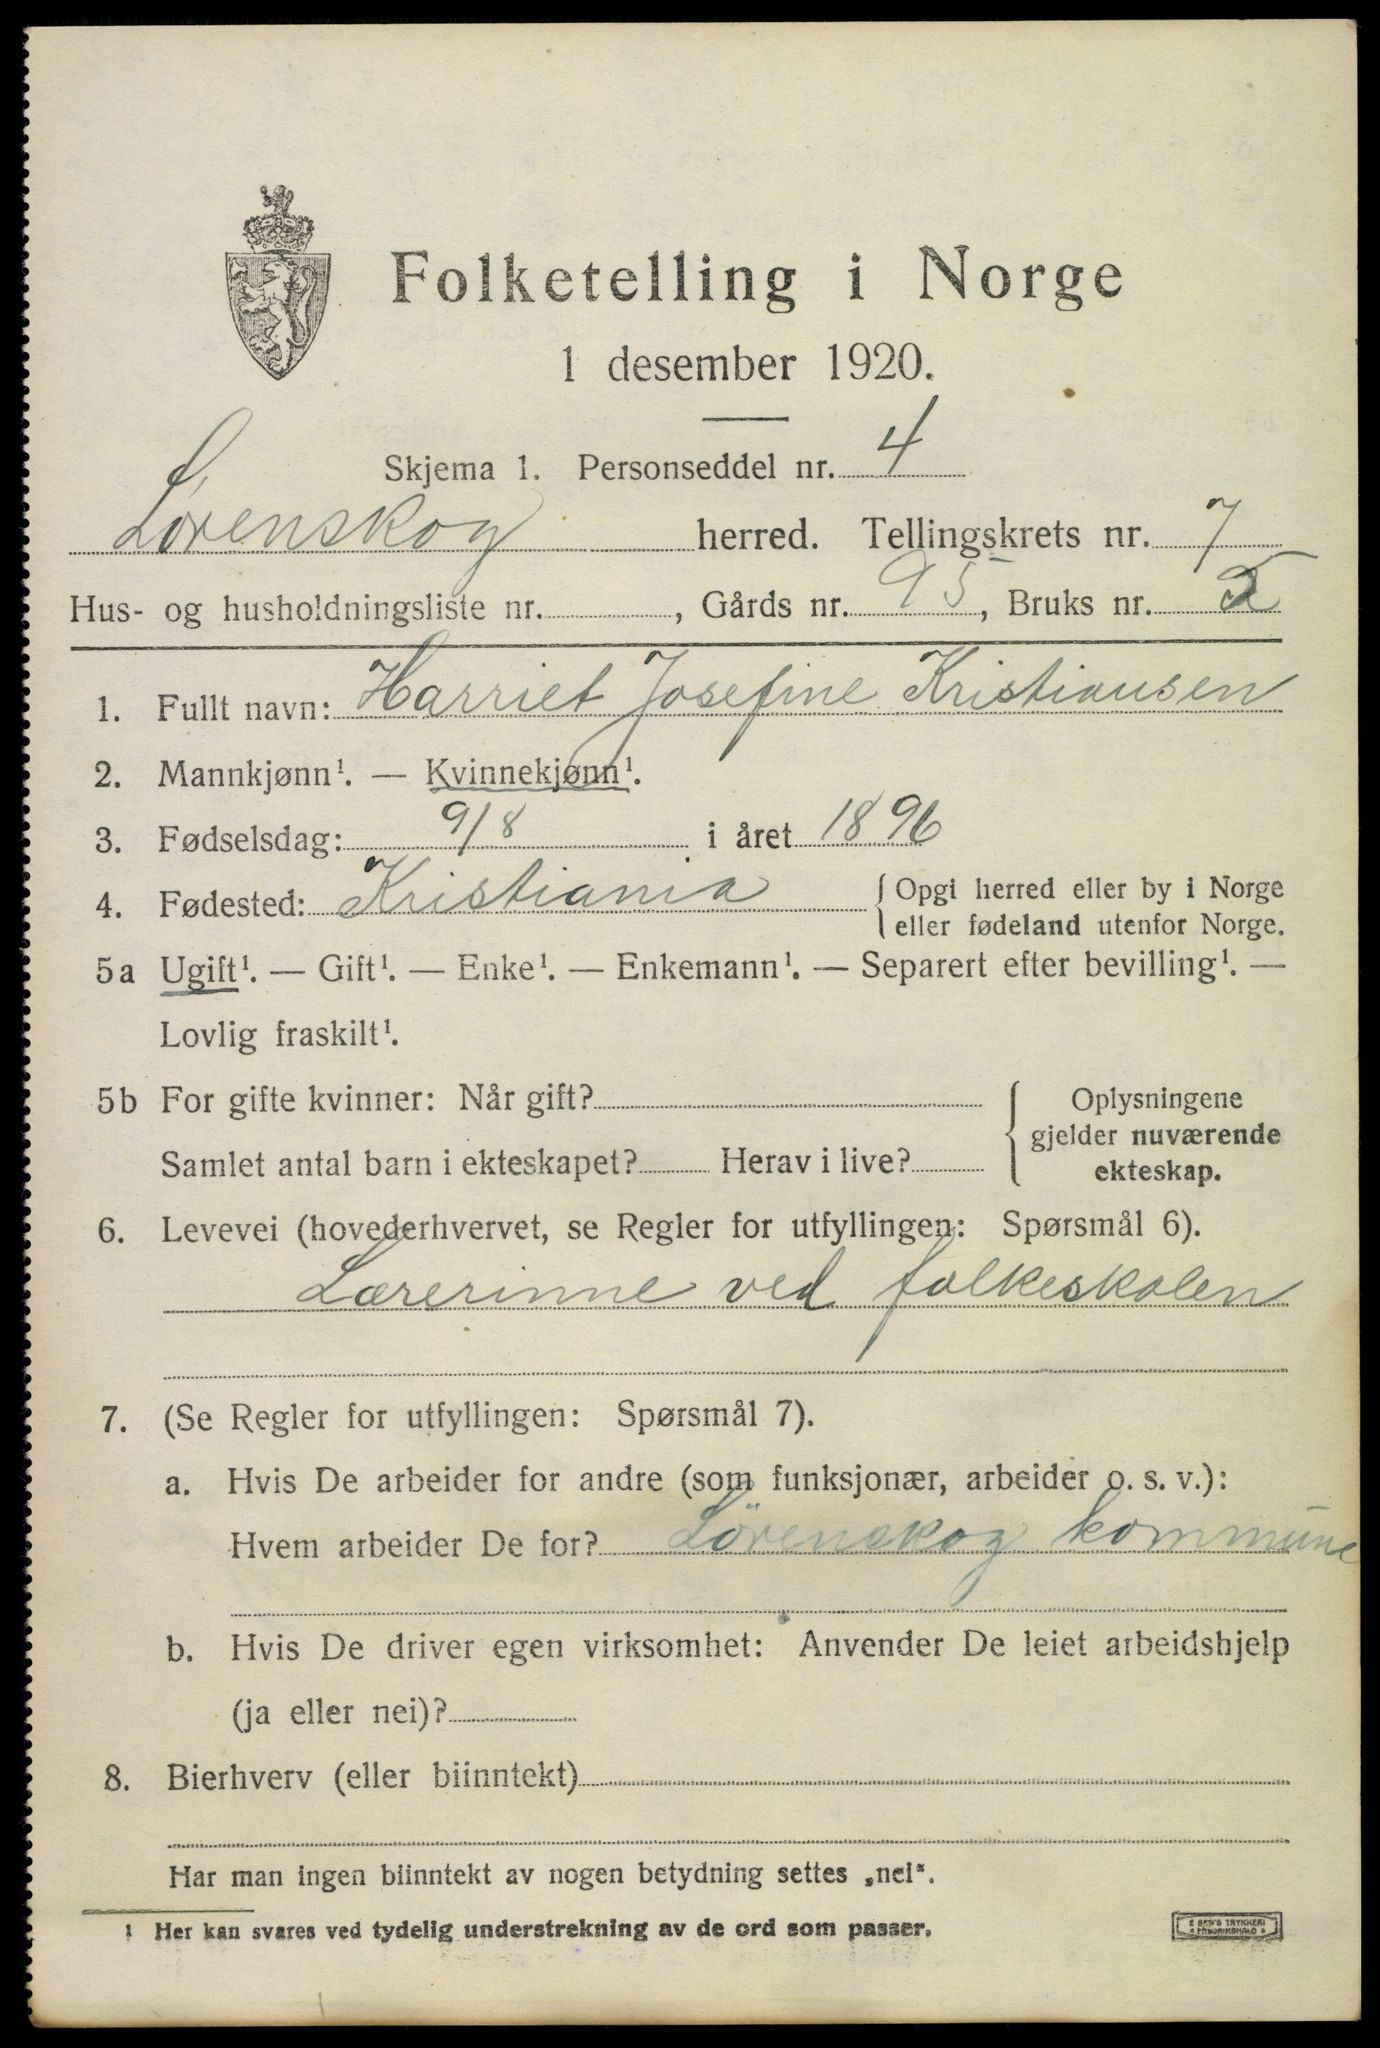 Folketelling i Norge
1 desember 1920.
Skjema 1. Personseddel nr. 4
Lørenskog herred. Tellingskrets nr. 7
Hus- og husholdningsliste nr. , Gårds nr. 95, Bruks nr.
1. Fullt navn: Harriet Josefine Kristiansen
2. Mannkjønn¹. — Kvinnekjønn¹.
3. Fødselsdag: 9/8 i året 1896
4. Fødested: Kristiania { Opgi herred eller by i Norge
eller fødeland utenfor Norge.
5a Ugift¹. — Gift¹. — Enke¹. — Enkemann¹. — Separert efter bevilling¹. —
Lovlig fraskilt¹.
5b For gifte kvinner: Når gift? { Oplysningene
gjelder nuværende
Samlet antal barn i ekteskapet? Herav i live?
ekteskap.
6. Levevei (hovederhvervet, se Regler for utfyllingen: Spørsmål 6).
Lærerinne ved folkeskolen
7. (Se Regler for utfyllingen: Spørsmål 7).
a. Hvis De arbeider for andre (som funksjonær, arbeider o. s. v.):
Hvem arbeider De for? Lörenskog kommune
b. Hvis De driver egen virksomhet: Anvender De leiet arbeidshjelp
(ja eller nei)?
8. Bierhverv (eller biinntekt)
Har man ingen biinntekt av nogen betydning settes „nei“.
1 Her kan svares ved tydelig understrekning av de ord som passer.
E SEM'S TRYKKERI
FREDRIKSHALD